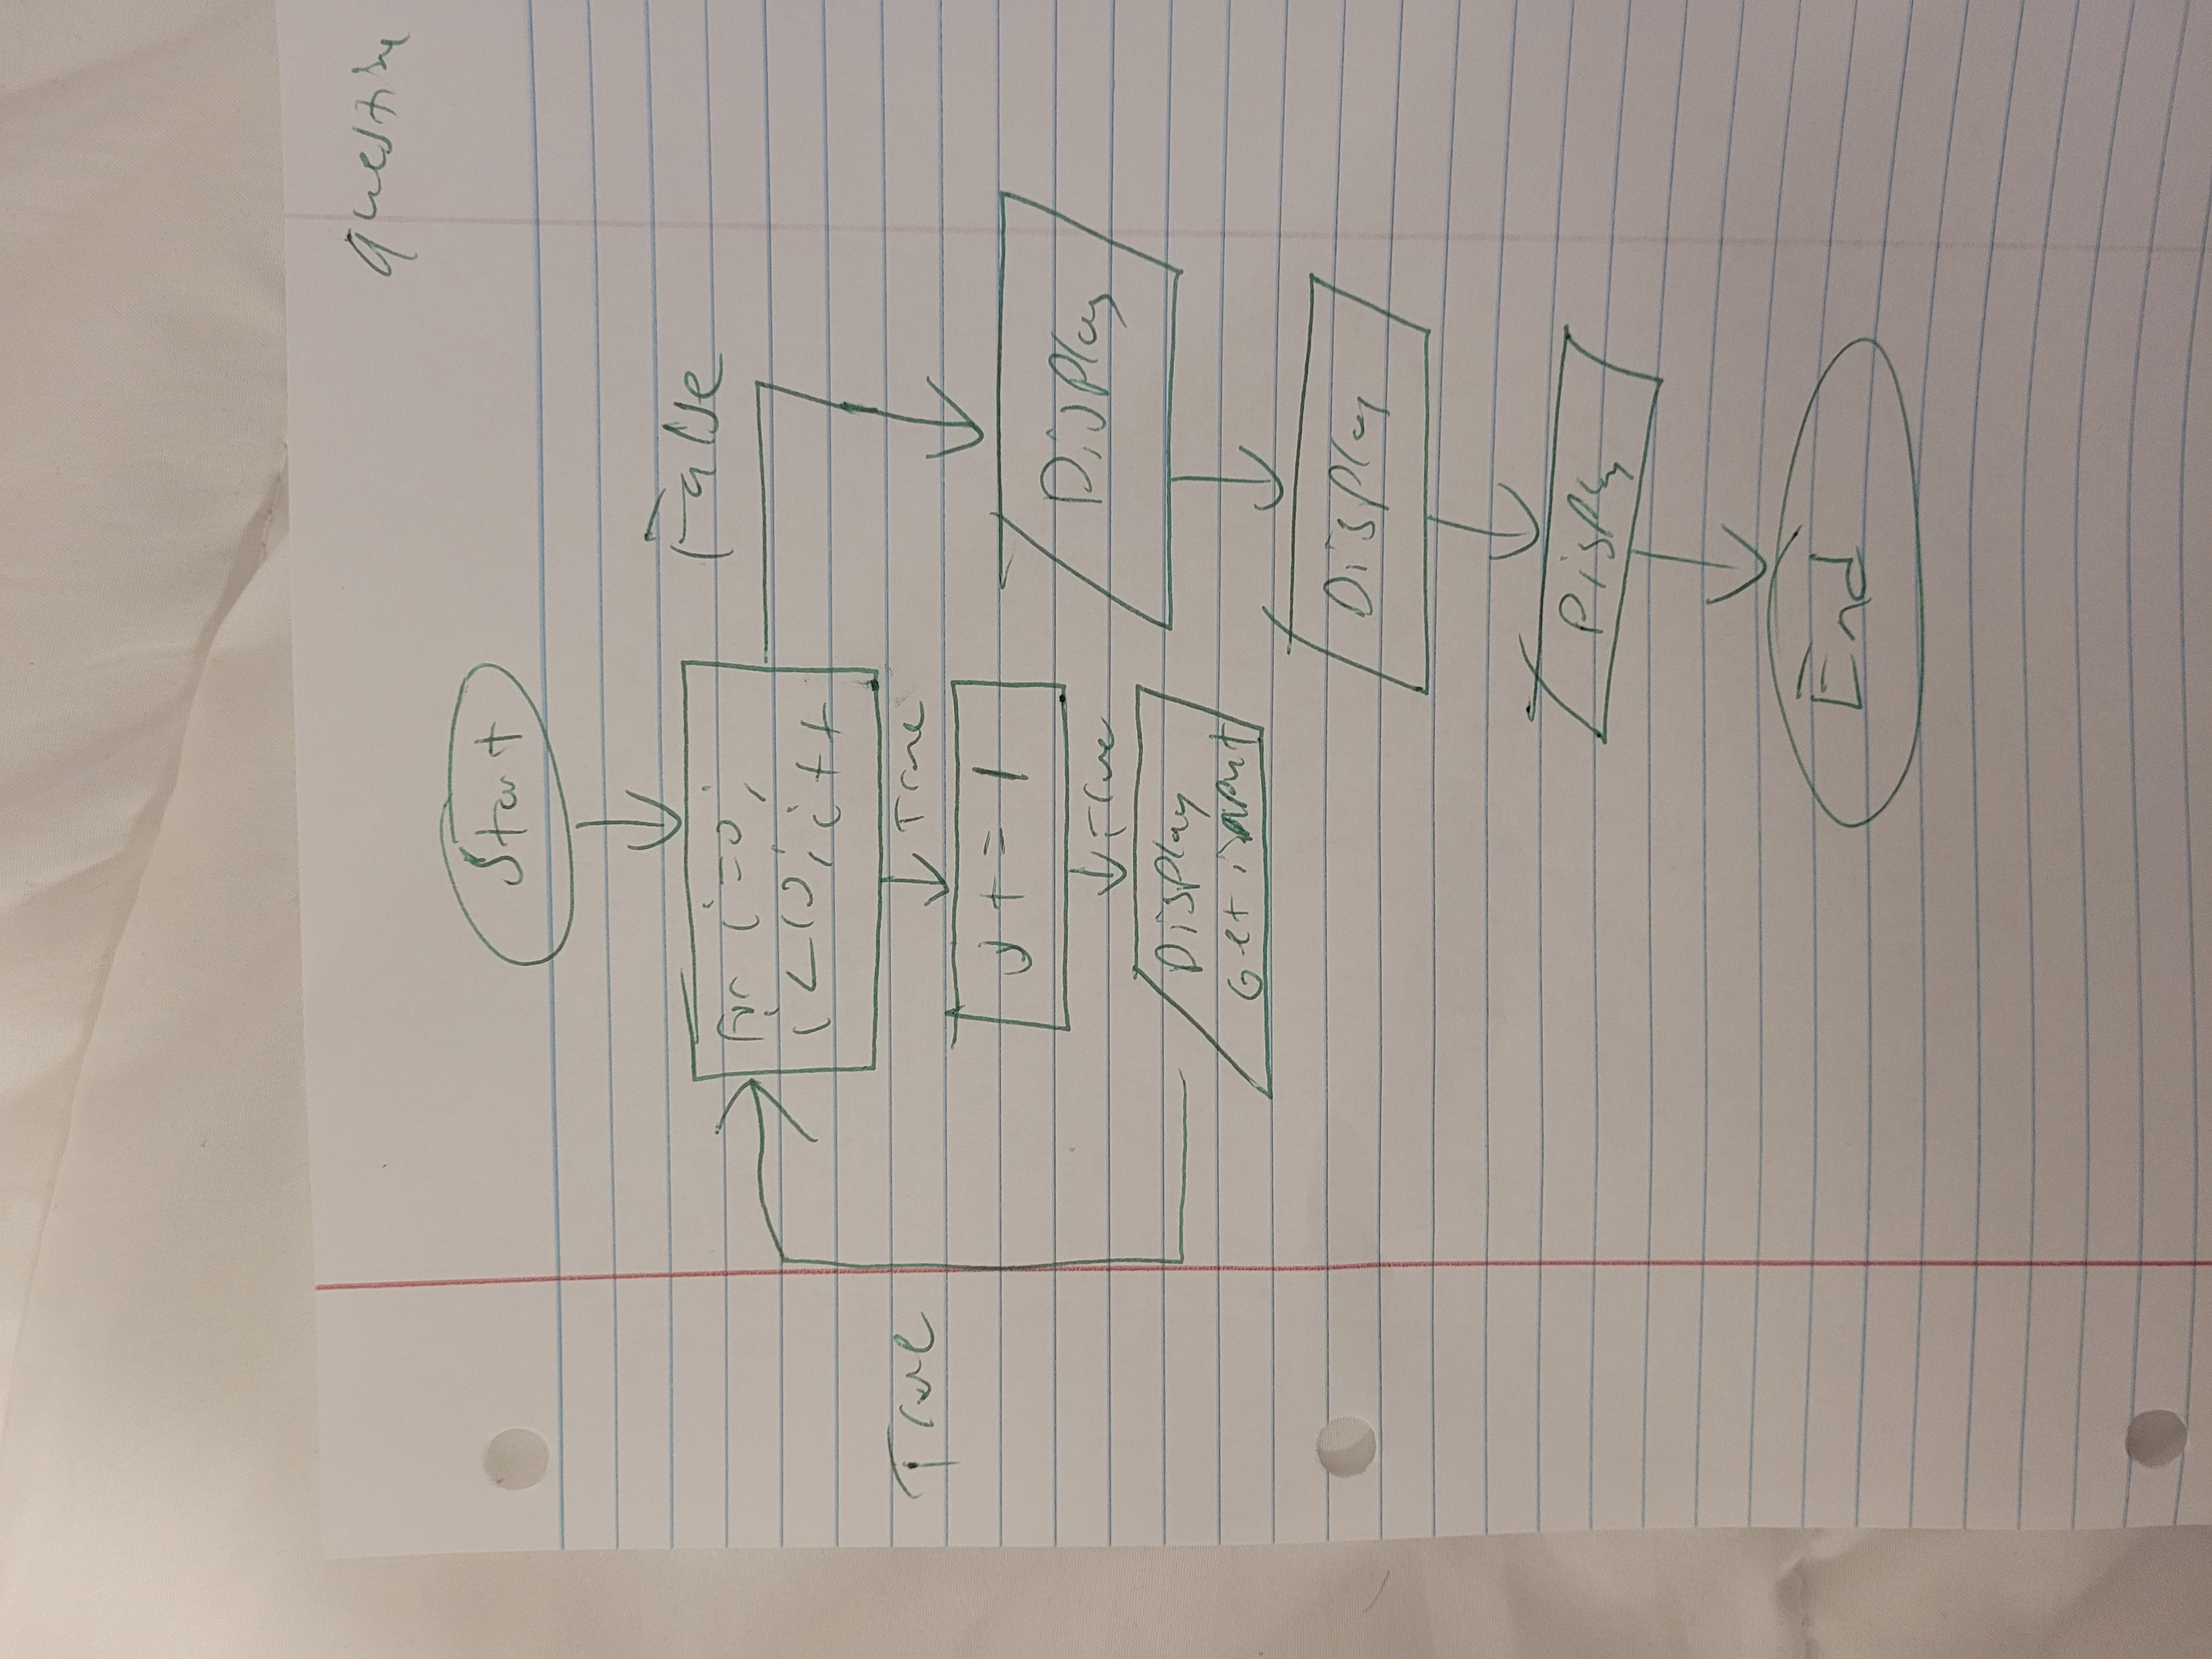 question
Start
for i=0;
i<10; i++
False
True
True
j += 1
True
Display
Get input
Display
Display
Display
End